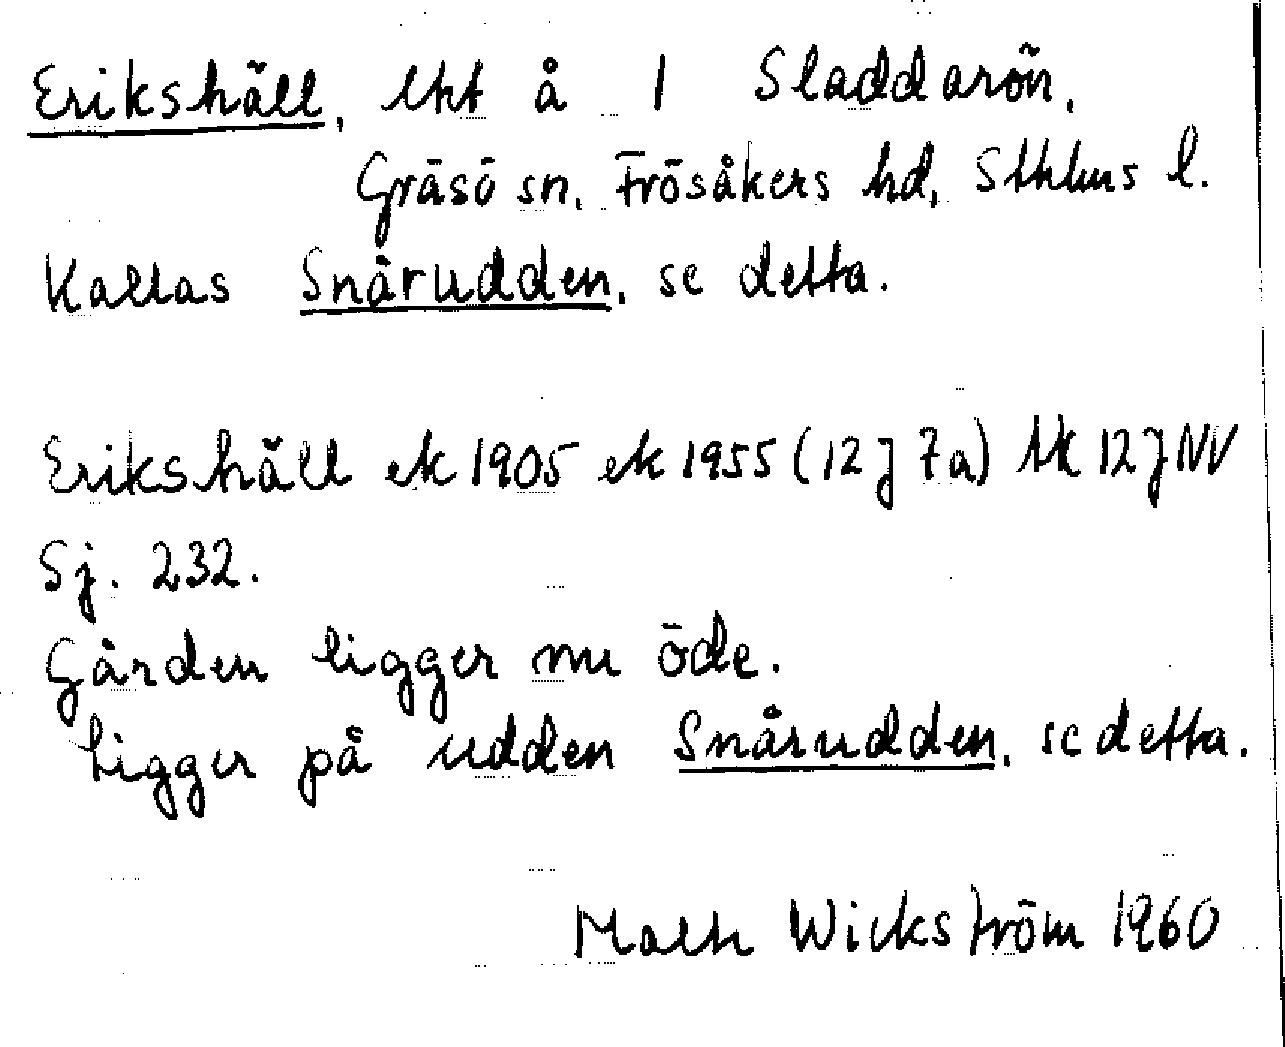 Erikshäll, lht å 1 Sladdarön,
Gräsö sn, Frösåkers hd, Sthlms l.
Kallas Snårudden, se detta.
Erikshäll ek 1905 ek 1955 (12 J 7a) tk 12J NV
Sj. 232.
Gården ligger nu öde.
Ligger på udden Snårudden, se detta.
Wickström 1960